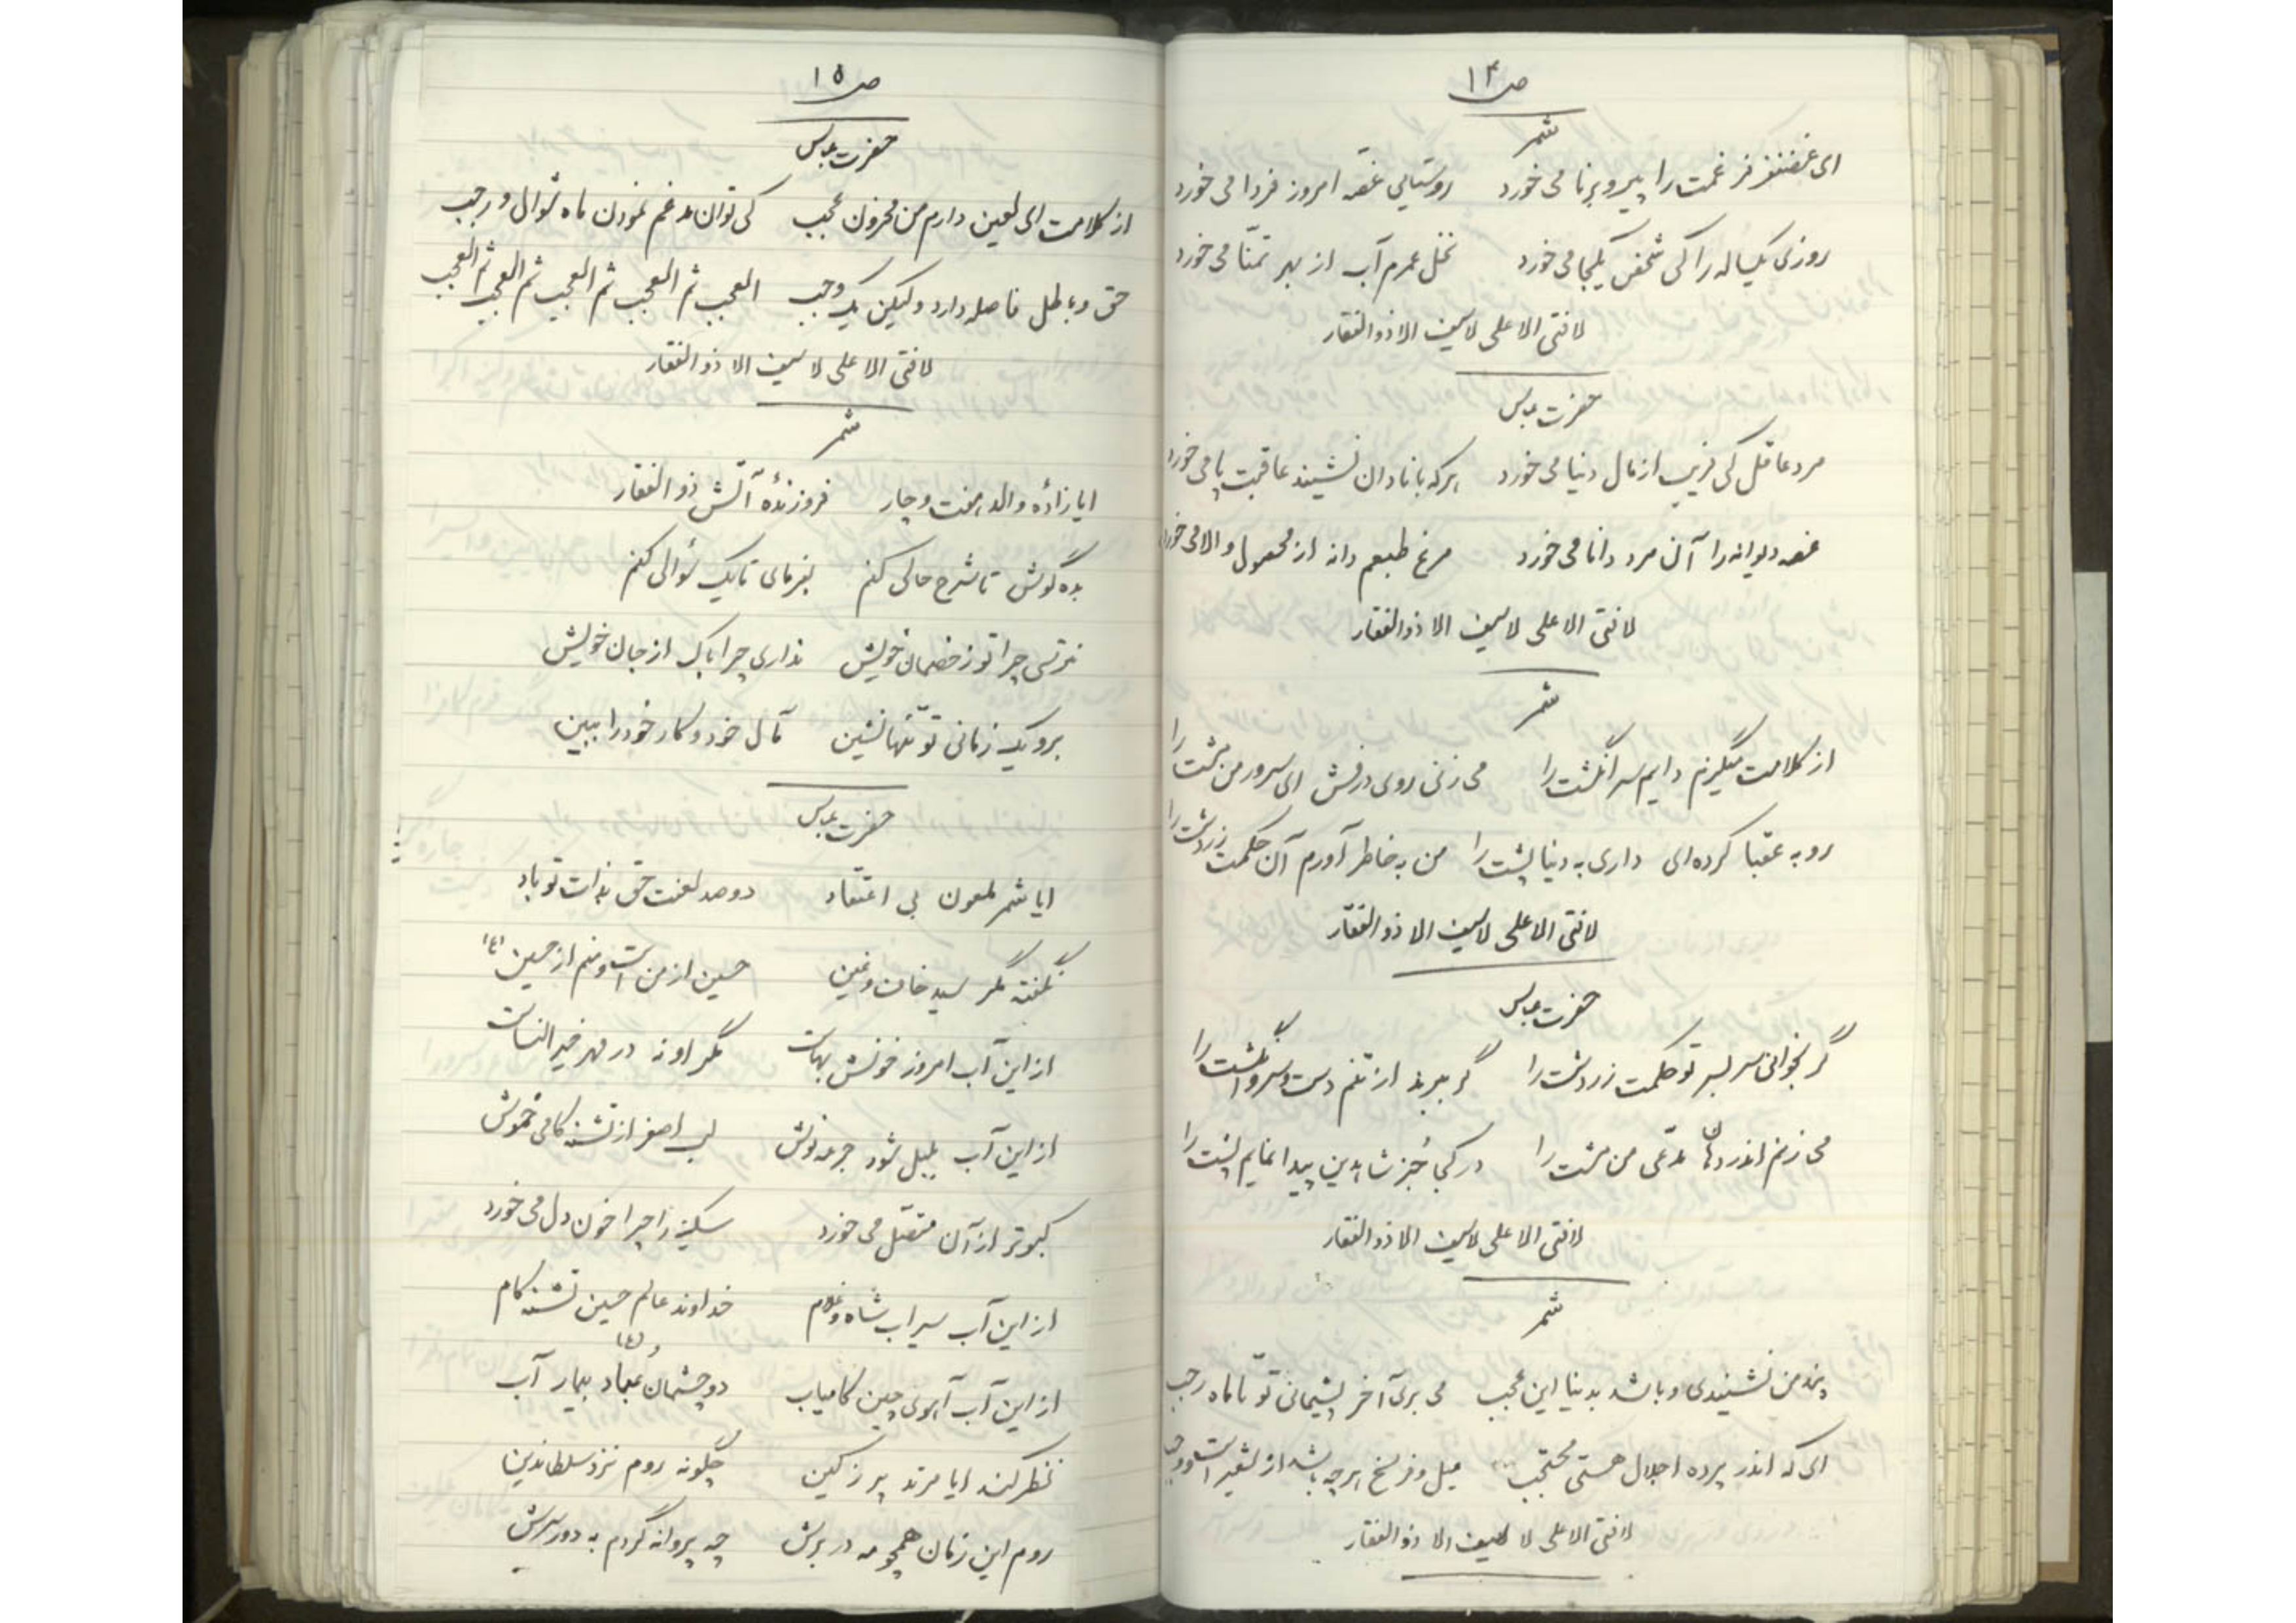 ص ۱۴
شمر
ای غضنفر فر غمت را پیر و برنا می خورد روستایی غصه امروز فردا می خورد
روزی یکساله را کی شخص یکجا می خورد نخل عمرم آب از بهر تمنّا می خورد
لافتی الا علی لاسیف الا ذوالفقار
حضرت عباس
مرد عاقل کی فریب از مال دنیا می خورد هرکه با نادان نشیند عاقبت پا می خورد
غصه دیوانه را آن مرد دانا می خورد مرغ طبعم دانه از محصول والا می خورد
لافتی الا علی لاسیف الا ذوالفقار
شمر
از کلامت میگزم دایم سر انگشت را می زنی روی درفش ای سرور من مشت را
رو به عقبا کرده ای داری به دنیا پشت را من به خاطر آورم آن حکمت زردشت را
لافتی الا علی لاسیف الا ذوالفقار
حضرت عباس
گر بخوانی سر بسر تو حکمت زردشت را گر ببرند از تنم دست و سر و انگشت را
می زنم اندر دهان مدّعی من مشت را در کجا جز شاهدین پیدا نمایم پشت را
لافتی الا علی لاسیف الا ذوالفقار
شمر
پند من نشنیدی و باشد بدنیا این عجب می بری آخر پشیمانی تو تا ماه رجب
ای که اندر پرده اجلال هستی محتجب میل و فرسخ هرچه باشد از شعیر است و وجب
لافتی الا علی لا سیف الا ذوالفقار
ص ۱۵
حضرت عباس
از کلامت ای لعین دارم من محزون عجب کی توان مدغم نمودن ماه شوال و رجب
حق و باطل فاصله دارد ولیکن یک وجب العجب ثم العجب ثم العجب ثم العجب ثم العجب
لافتی الا علی لا سیف الا ذوالفقار
شمر
ایا زادهٔ والد هفت و چار فروزندهٔ آتش ذوالفقار
بده گوش تا شرح حالی کنم بفرمای تا یک سؤالی کنم
نترسی چرا تو ز خصمان خویش نداری چرا باک از جان خویش
برو یک زمانی تو تنها نشین مآل خود و کار خود را ببین
حضرت عباس
ایا شمر ملعون بی اعتقاد دوصد لعنت حق بذات تو باد
نگفته مگر سید خافقین حسین از من است و منم از حسین (ع)
از این آب امروز خونش بهاست مگر او نه در مهر خیرالنساست
از این آب بلبل شود جرعه نوش لب اصغر از تشنه کامی خموش
کبوتر از آن متصّل می خورد سکینه چرا خون دل می خورد
از این آب سیراب شاه و غلام خداوند عالم حسین تشنه کام
از این آب آهوی چین کامیاب دو چشمان عباد (ع) بیمار آب
نظر کند ایا مرتد پر ز کین چگونه روم نزد سلطان دین
روم این زمان همچو مه در برش چه پروانه گردم به دور سرش